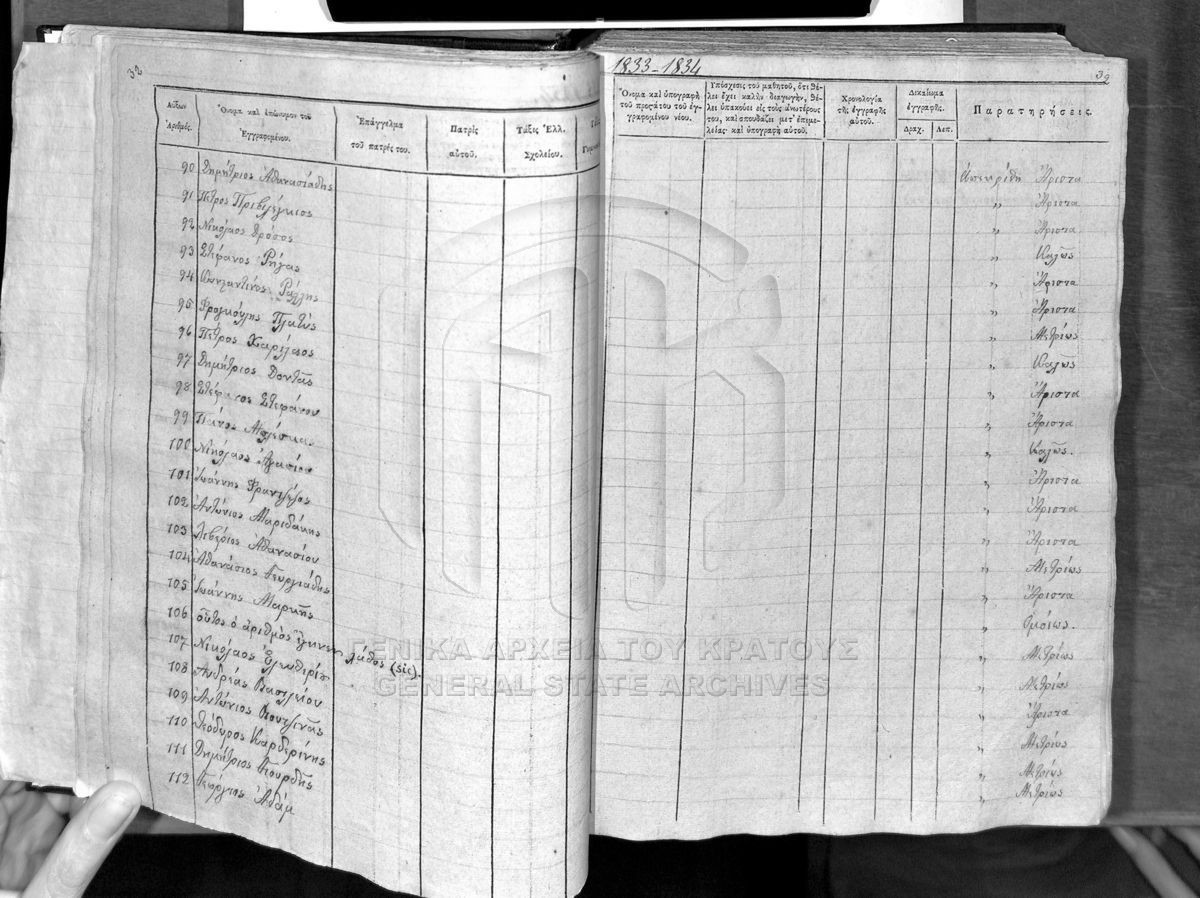 32
1833-1834
32
Αὔξων Ἀριθμός.
Ὄνομα καὶ ἐπώνυμον τοῦ Ἐγγραφομένου.
Ἐπάγγελμα τοῦ πατρός του.
Πατρὶς αὐτοῦ.
Τάξις Ἑλλ. Σχολείου.
Ὄνομα καὶ ὑπογραφὴ τοῦ προστάτου τοῦ ἐγγραφομένου νέου.
Ὑπόσχεσις τοῦ μαθητοῦ, ὅτι θέλει ἔχει καλὴν διαγωγήν, θέλει ὑπακούει εἰς τοὺς ἀνωτέρους του, καὶ σπουδάζει μετ' ἐπιμελείας· καὶ ὑπογραφὴ αὐτοῦ.
Χρονολογία τῆς ἐγγραφῆς αὐτοῦ.
Δικαίωμα ἐγγραφῆς.
Δραχ. Λεπ.
Παρατηρήσεις.
90 Δημήτριος Ἀθανασιάδης Ἄριστα
91 Πέτρος Πριβιλέγκιος „ Ἄριστα
92 Νικόλαος Δρόσος „ Ἄριστα
93 Στέφανος Ῥήγας „ Καλῶς
94 Κωνσταντίνος Ῥάλλης „ Ἄριστα
95 Φραγκούλης Πλατύς „ Ἄριστα
96 Πέτρος Χαρίλαος „ Μετρίως
97 Δημήτριος Δοντᾶς „ Καλῶς
98 Στέφανος Στεφάνου „ Ἄριστα
99 Πάνος „ Ἄριστα
100 Νικόλαος „ Καλῶς.
101 Ἰωάννης Φραντζέζος „ Ἄριστα
102 Ἀντώνιος Μαριδάκης „ Ἄριστα
103 Λιβέριος Ἀθανασίου „ Ἄριστα
104 Ἀθανάσιος Γεωργιάδης „ Μετρίως
105 Ἰωάννης Μαρκῆς „ Ἄριστα
106 οὗτος ὁ ἀριθμὸς ἐλήνει λάθος (sic). „ Ὁμοίως.
107 Νικόλαος „ Μετρίως
108 Ἀνδρέας Βασιλείου „ Μετρίως
109 Ἀντώνιος Κουτζινᾶς „ Ἄριστα
110 Θεόδωρος Καρδερίνης „ Μετρίως
111 Δημήτριος Γουρδῆς „ Μετρίως
112 Γεώργιος Ἀδάμ „ Μετρίως
ΓΕΝΙΚΑ ΑΡΧΕΙΑ ΤΟΥ ΚΡΑΤΟΥΣ
GENERAL STATE ARCHIVES